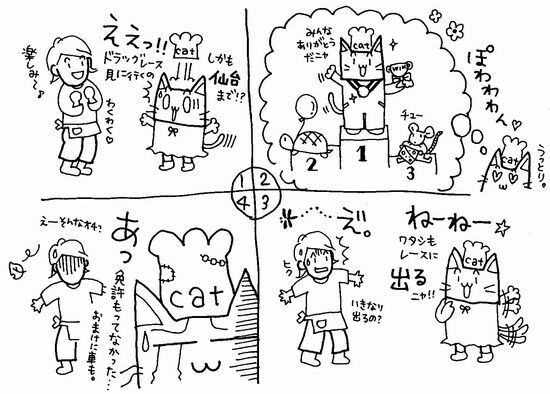 楽しみ〜♪
わくわく♡
ええっ!!
ドラッグレース
見に行くの
しかも
仙台
まで!?
cat
1
2
みんな
ありがとう
だニャ
cat
チュー
2
1
3
ぽわわわぁん♡
うっとり。
cat
3
ねーねー☆
ワタシも
レースに
出る
ニャ!!
cat
え"。
ヒク
いきなり
出るの?
4
えーそんなオチ?
あっ
免許もってなかった…
おまけに車も。
cat